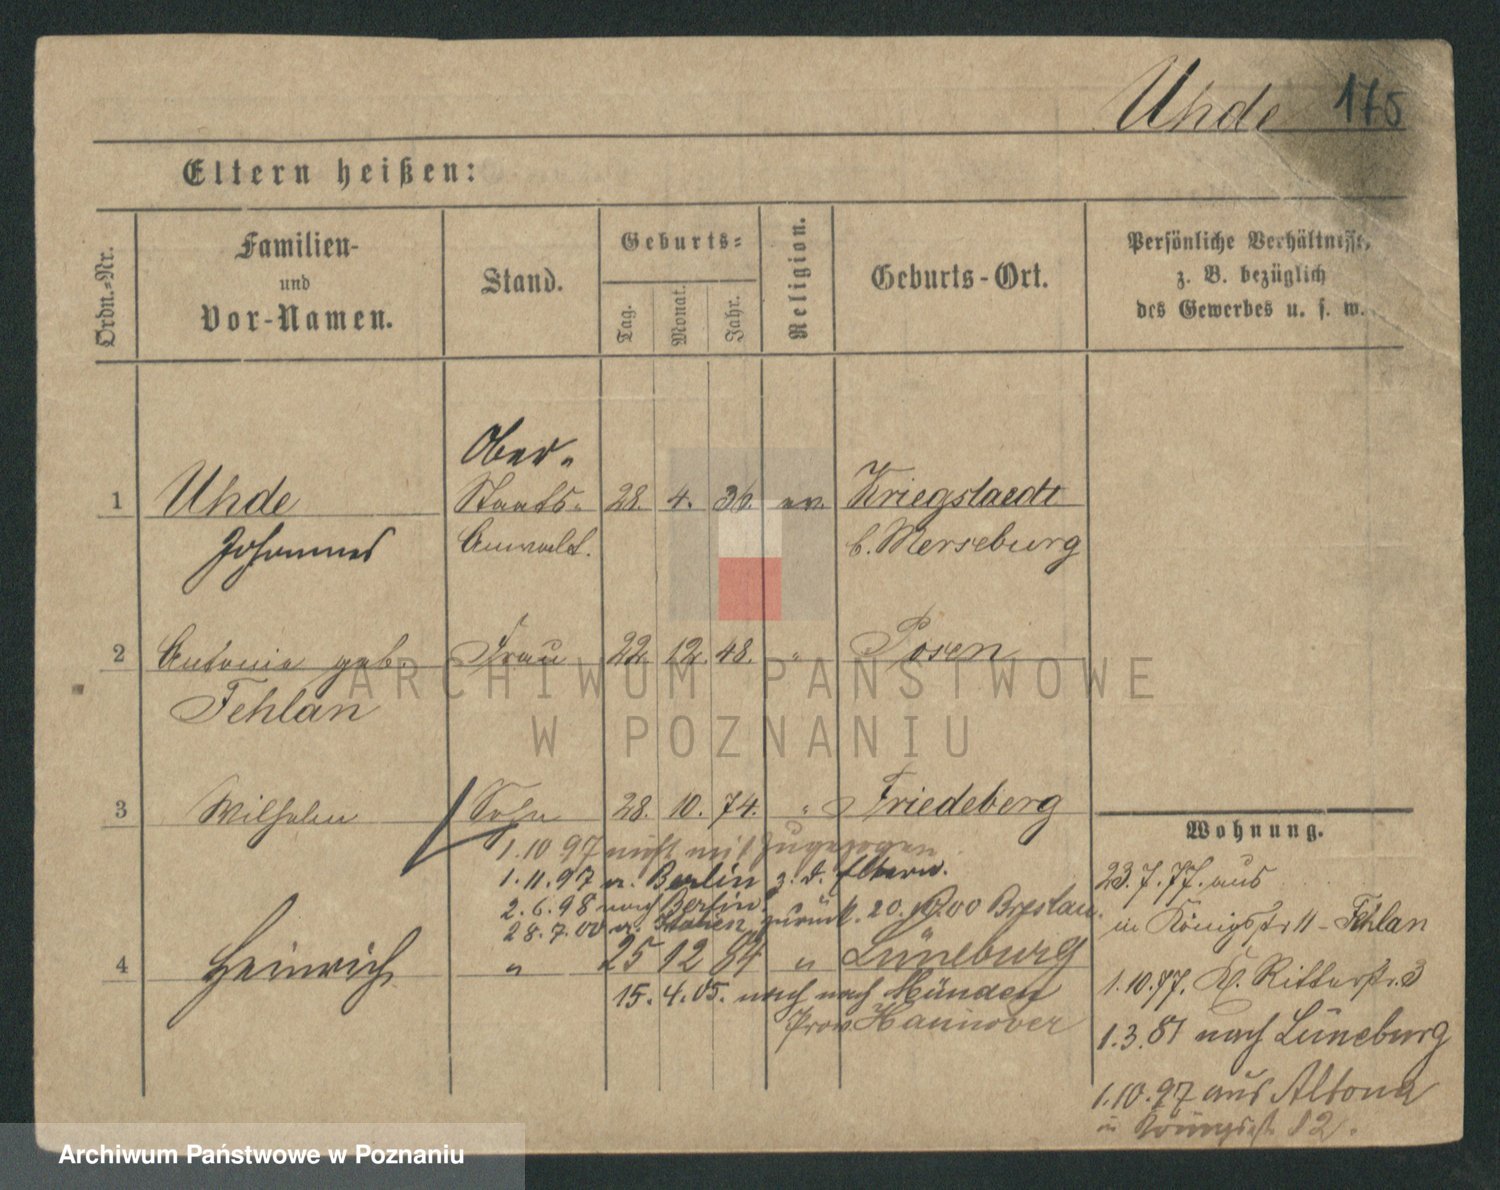 Uhde 175
Eltern heißen:
Ordn.-Nr.
Familien-
und
Vor-Namen.
Stand.
Geburts-
Tag.
Monat.
Jahr.
Religion.
Geburts-Ort.
Persönliche Verhältnisse,
z. B. bezüglich
des Gewerbes u. s. w.
Ober-
1 Uhde Staats- 28. 4. 36. ev. Kriegstaedt
Johannes Anwalt. b. Merseburg
2 Antonie geb. Frau 22. 12. 48. " Posen
Fehlan
3 Wilhelm Sohn 28. 10. 74. " Friedeberg
1.10 97 nicht mit zugezogen
1.11.97 v. Berlin z. d. Eltern.
2.6.98 nach Berlin.
28.7.00 v. Italien zurück. 20. 00 Breslau.
4 Heinrich " 25 12 84 " Lüneburg
15.4.05. nach nach Münden
Prov Hannover
Wohnung.
23.7.77. aus
in Königstr 11 - Fehlan
1.10.77. Kl. Ritterstr. 3
1.3.81 nach Lüneburg
1.10.97 aus Altona
in Königstr. 12.
ARCHIWUM PAŃSTWOWE
W POZNANIU
Archiwum Państwowe w Poznaniu